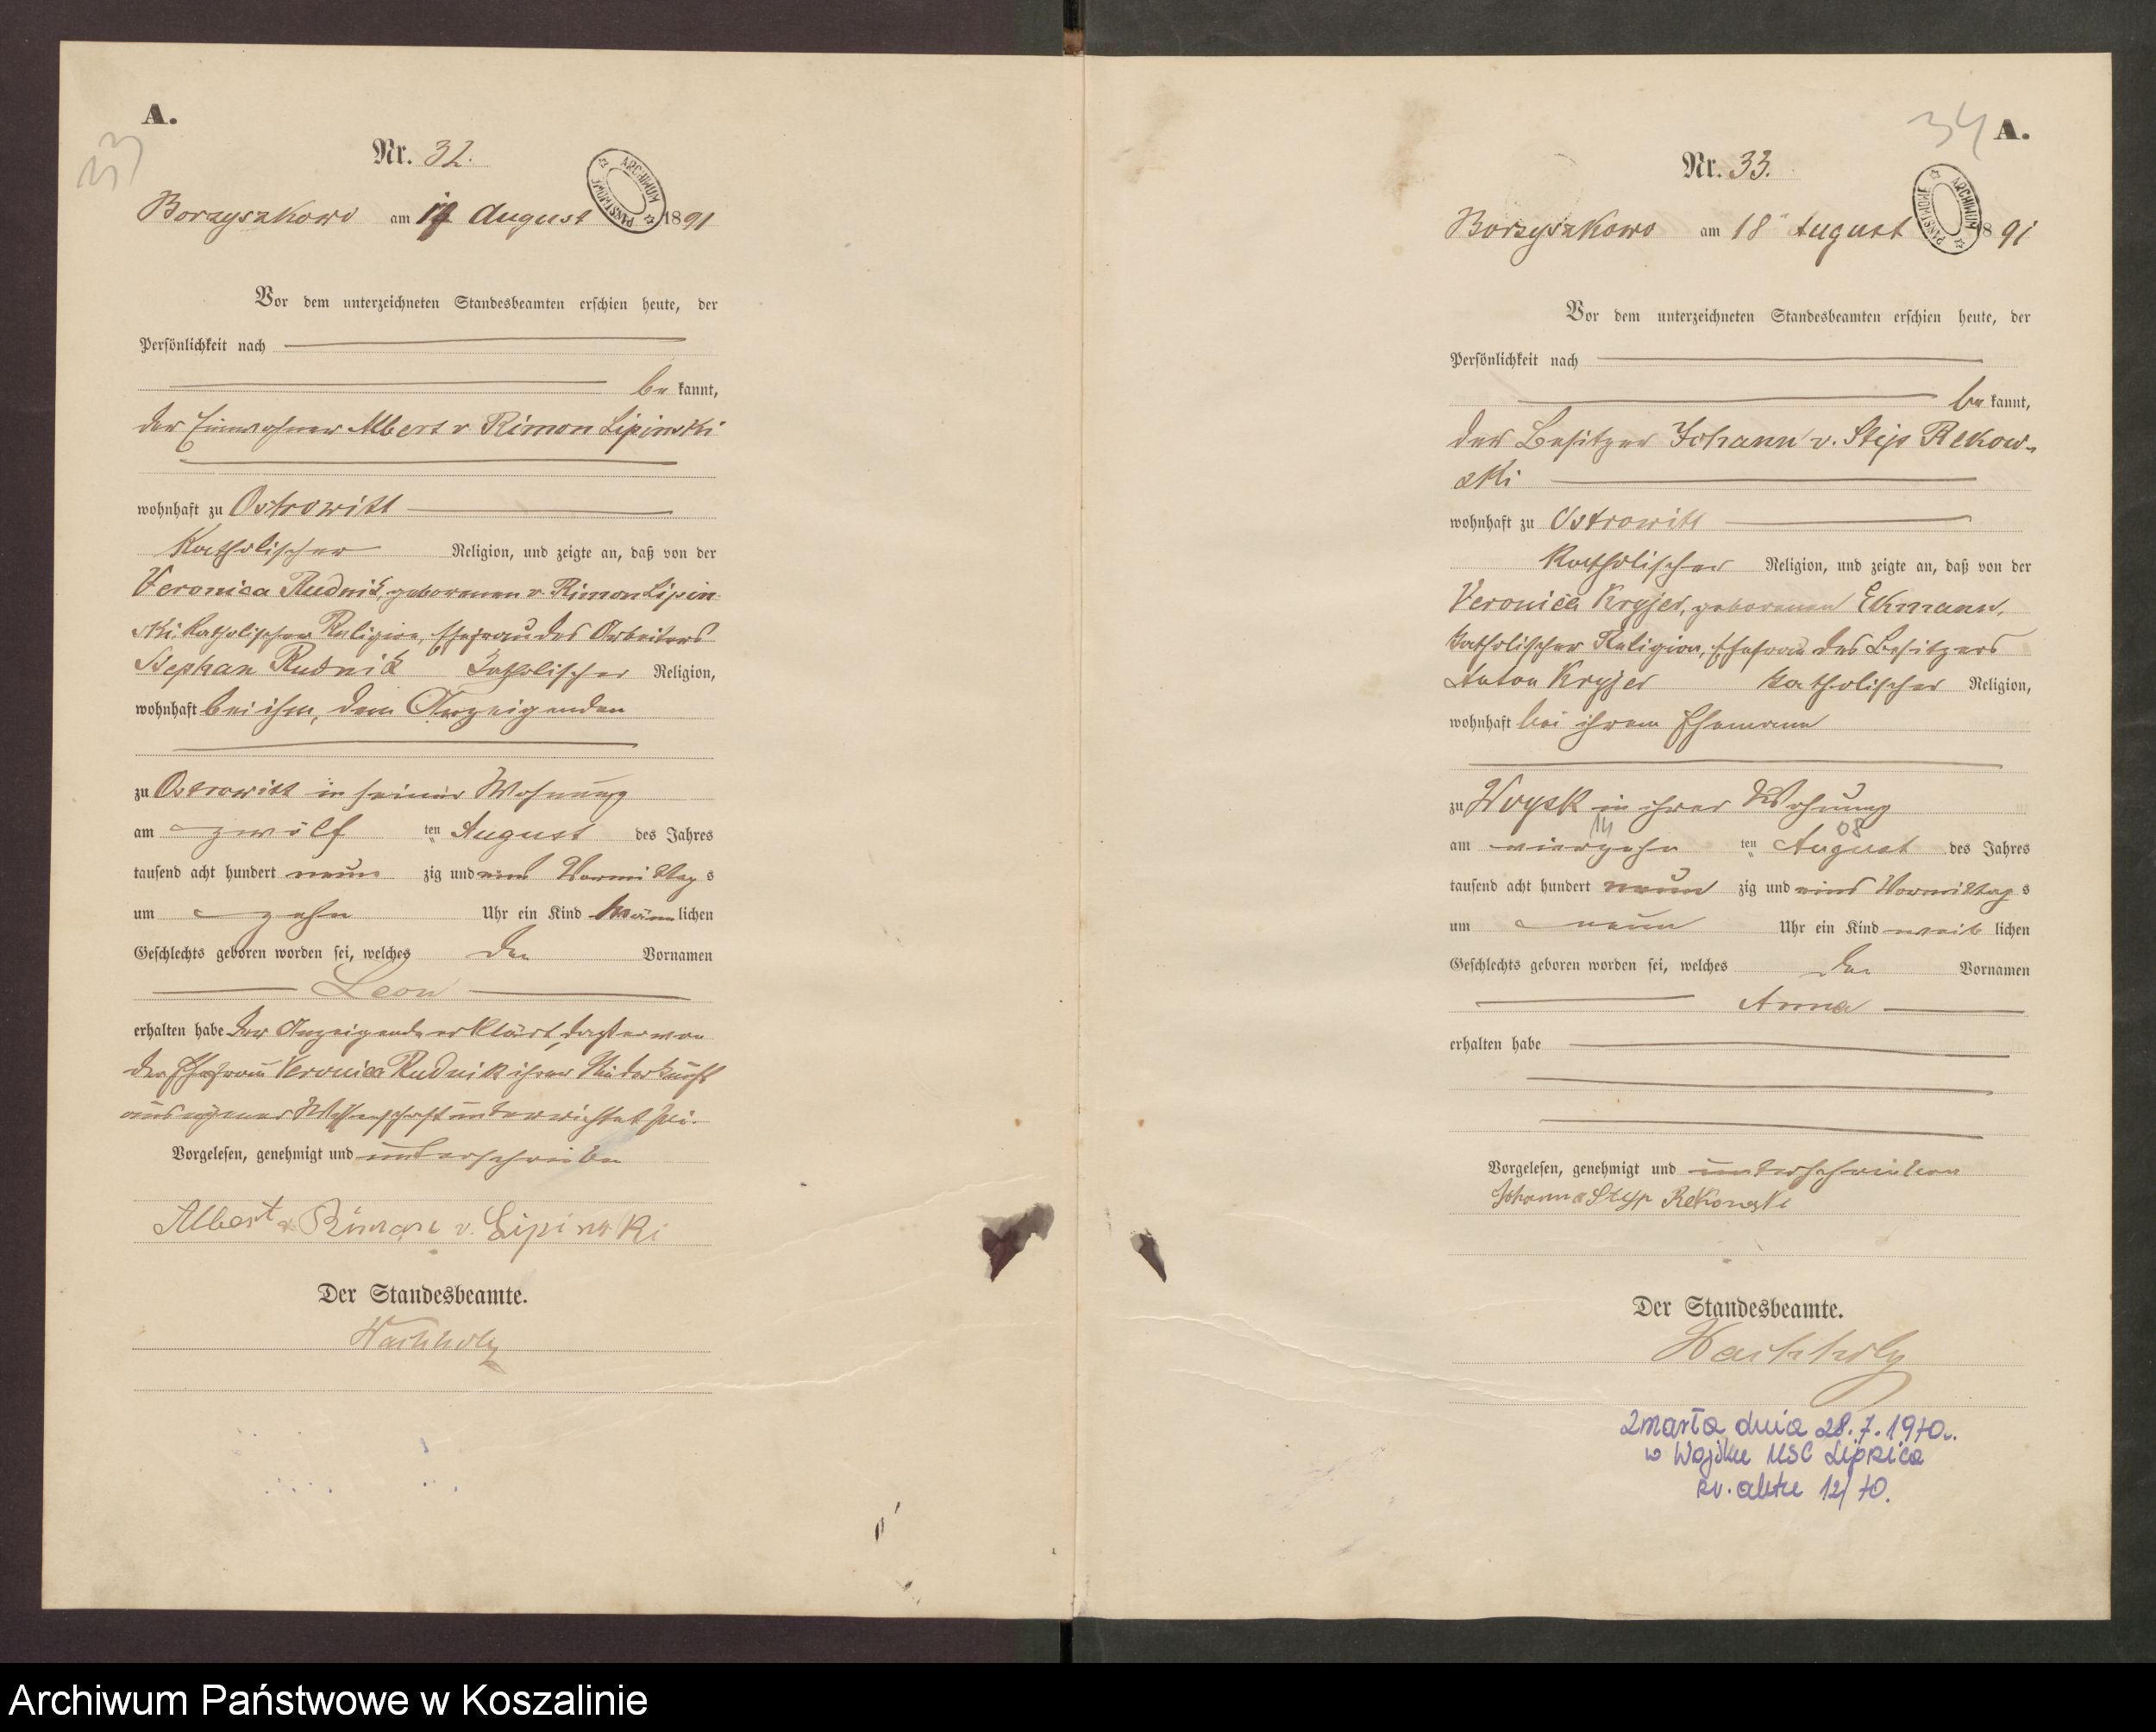 A.
33
Nr. 32.
ARCHIWUM PAŃSTWOWE
Borzyszkowo am 17 August 1891
Vor dem unterzeichneten Standesbeamten erschien heute, der
Persönlichkeit nach
be kannt,
der Einwohner Albert v Rimon Lipinski
wohnhaft zu Ostrowitt
katholischer Religion, und zeigte an, daß von der
Veronica Rudnik, geborenen v. Rimon Lipin
ski katholischer Religion, Ehefrau des Arbeiters
Stephan Rudnik katholischer Religion,
wohnhaft bei ihm, dem Anzeigenden
zu Ostrowitt in seiner Wohnung
am zwölf ten August des Jahres
tausend acht hundert neun zig und eins Vormittags
um zehn Uhr ein Kind männlichen
Geschlechts geboren worden sei, welches den Vornamen
Leon
erhalten habe Der Anzeigende erklärt, daß er von
der Ehefrau Veronica Rudnik ihrer Niederkunft
aus eigener Wissenschaft unterrichtet sei.
Vorgelesen, genehmigt und unterschrieben
Albert Rimon v. Lipinski
Der Standesbeamte.
Wachholz
34
A.
Nr. 33.
ARCHIWUM PAŃSTWOWE
Borzyszkowo am 18 August 1891
Vor dem unterzeichneten Standesbeamten erschien heute, der
Persönlichkeit nach
be kannt,
der Besitzer Johann v. Styp Rekow-
ski
wohnhaft zu Ostrowitt
katholischer Religion, und zeigte an, daß von der
Veronica Kryjer, geborenen Ekmann,
katholischer Religion, Ehefrau des Besitzers
Anton Kryjer katholischer Religion,
wohnhaft bei ihrem Ehemann
zu Woysk in ihrer Wohnung
14 08
am vierzehn ten August des Jahres
tausend acht hundert neun zig und eins Vormittags
um neun Uhr ein Kind weib lichen
Geschlechts geboren worden sei, welches den Vornamen
Anna
erhalten habe
Vorgelesen, genehmigt und unterschrieben
Johann Styp Rekowski
Der Standesbeamte.
Wachholz
Zmarła dnia 28.7.1970.
w Wojsku USC Lipnica
nr. aktu 12/70.
Archiwum Państwowe w Koszalinie